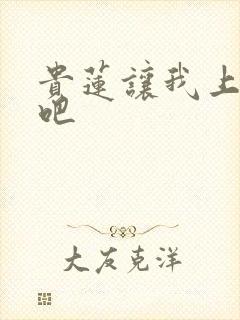 貴蓮讓我上
吧
大友克洋